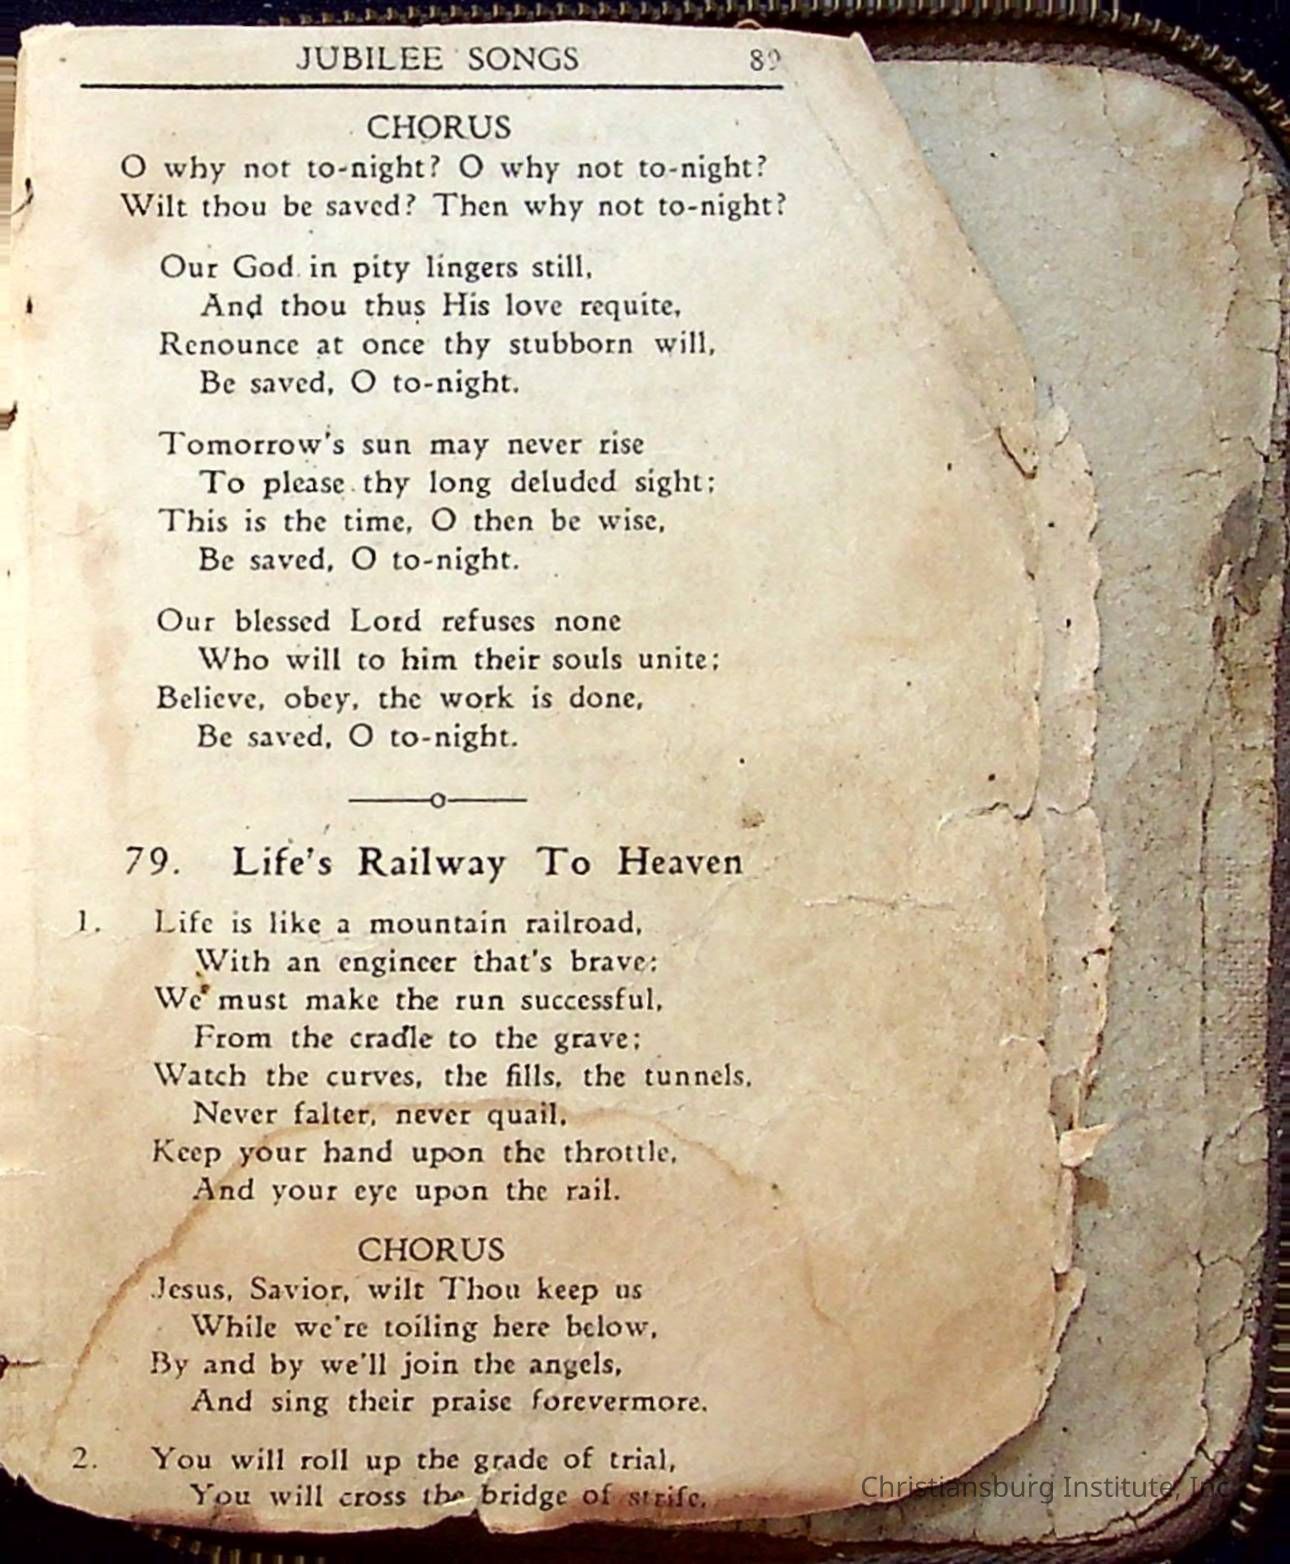 JUBILEE SONGS 89
CHORUS
O why not to-night? O why not to-night?
Wilt thou be saved? Then why not to-night?
Our God in pity lingers still,
And thou thus His love requite,
Renounce at once thy stubborn will,
Be saved, O to-night.
Tomorrow's sun may never rise
To please thy long deluded sight;
This is the time, O then be wise,
Be saved, O to-night.
Our blessed Lord refuses none
Who will to him their souls unite;
Believe, obey, the work is done,
Be saved, O to-night.
79. Life's Railway To Heaven
1. Life is like a mountain railroad,
With an engineer that's brave;
We must make the run successful,
From the cradle to the grave;
Watch the curves, the fills, the tunnels,
Never falter, never quail,
Keep your hand upon the throttle,
And your eye upon the rail.
CHORUS
Jesus, Savior, wilt Thou keep us
While we're toiling here below,
By and by we'll join the angels,
And sing their praise forevermore.
2. You will roll up the grade of trial,
You will cross the bridge of strife,
Christiansburg Institute, Inc